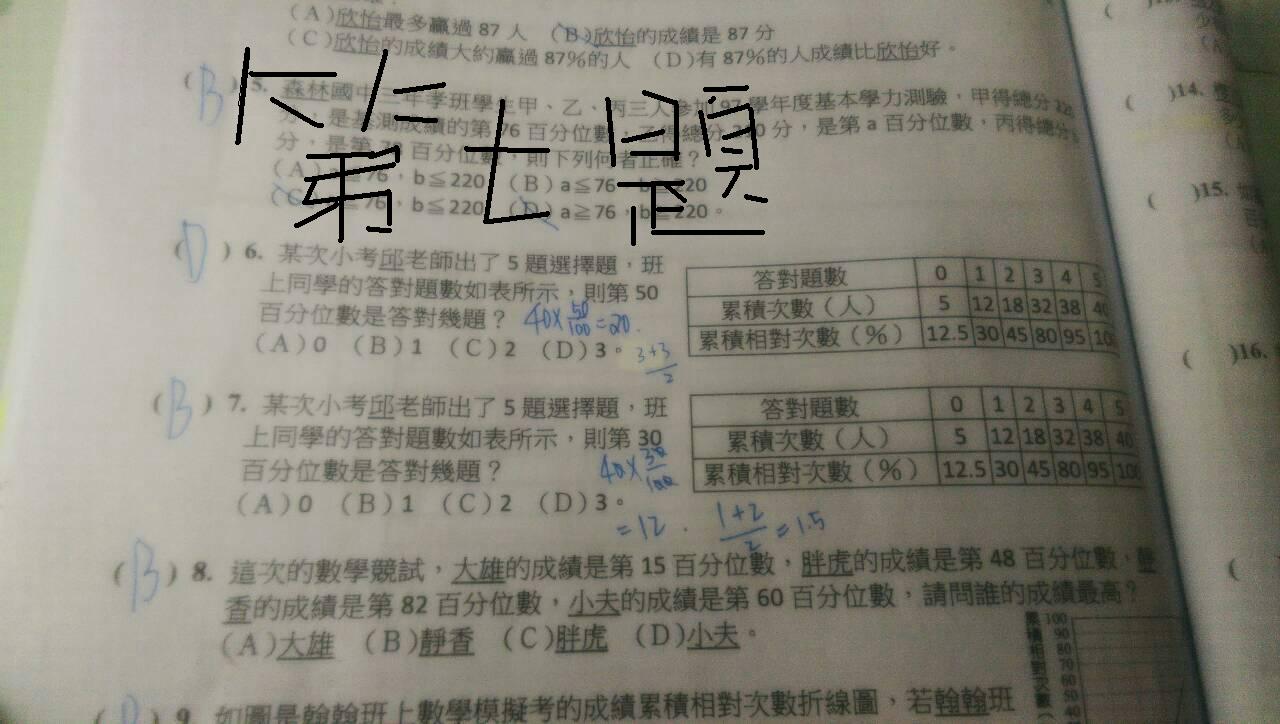 (A)欣怡最多贏過 87 人 (B)欣怡的成績是 87 分
(C)欣怡的成績大約贏過 87%的人 (D)有 87%的人成績比欣怡好。
第七題
(B) 5. 森林國中三年孝班學生甲、乙、丙三人參加 97 學年度基本學力測驗，甲得總分
分，是基測成績的第 76 百分位數，乙得總分 分，是第 a 百分位數，丙得總分
分，是第 百分位數，則下列何者正確？
76，b≦220 (B) a≦76，
76，b≦220 (D) a≧76，b≦220。
(D) 6. 某次小考邱老師出了 5 題選擇題，班
上同學的答對題數如表所示，則第 50
百分位數是答對幾題？ 40×50/100=20.
(A)0 (B)1 (C)2 (D)3。 3+3/2
答對題數 0 1 2 3 4 5
累積次數（人） 5 12 18 32 38 40
累積相對次數（%） 12.5 30 45 80 95 100
(B) 7. 某次小考邱老師出了 5 題選擇題，班
上同學的答對題數如表所示，則第 30
百分位數是答對幾題？ 40×30/100
(A)0 (B)1 (C)2 (D)3。
=12. 1+2/2=1.5
答對題數 0 1 2 3 4 5
累積次數（人） 5 12 18 32 38 40
累積相對次數（%） 12.5 30 45 80 95 100
(B) 8. 這次的數學競試，大雄的成績是第 15 百分位數，胖虎的成績是第 48 百分位數，靜
香的成績是第 82 百分位數，小夫的成績是第 60 百分位數，請問誰的成績最高？
(A)大雄 (B)靜香 (C)胖虎 (D)小夫。
9. 如圖是翰翰班上數學模擬考的成績累積相對次數折線圖，若翰翰班
累積相對次數
100
90
80
70
60
50
40
( )14.
( )15.
( )16.